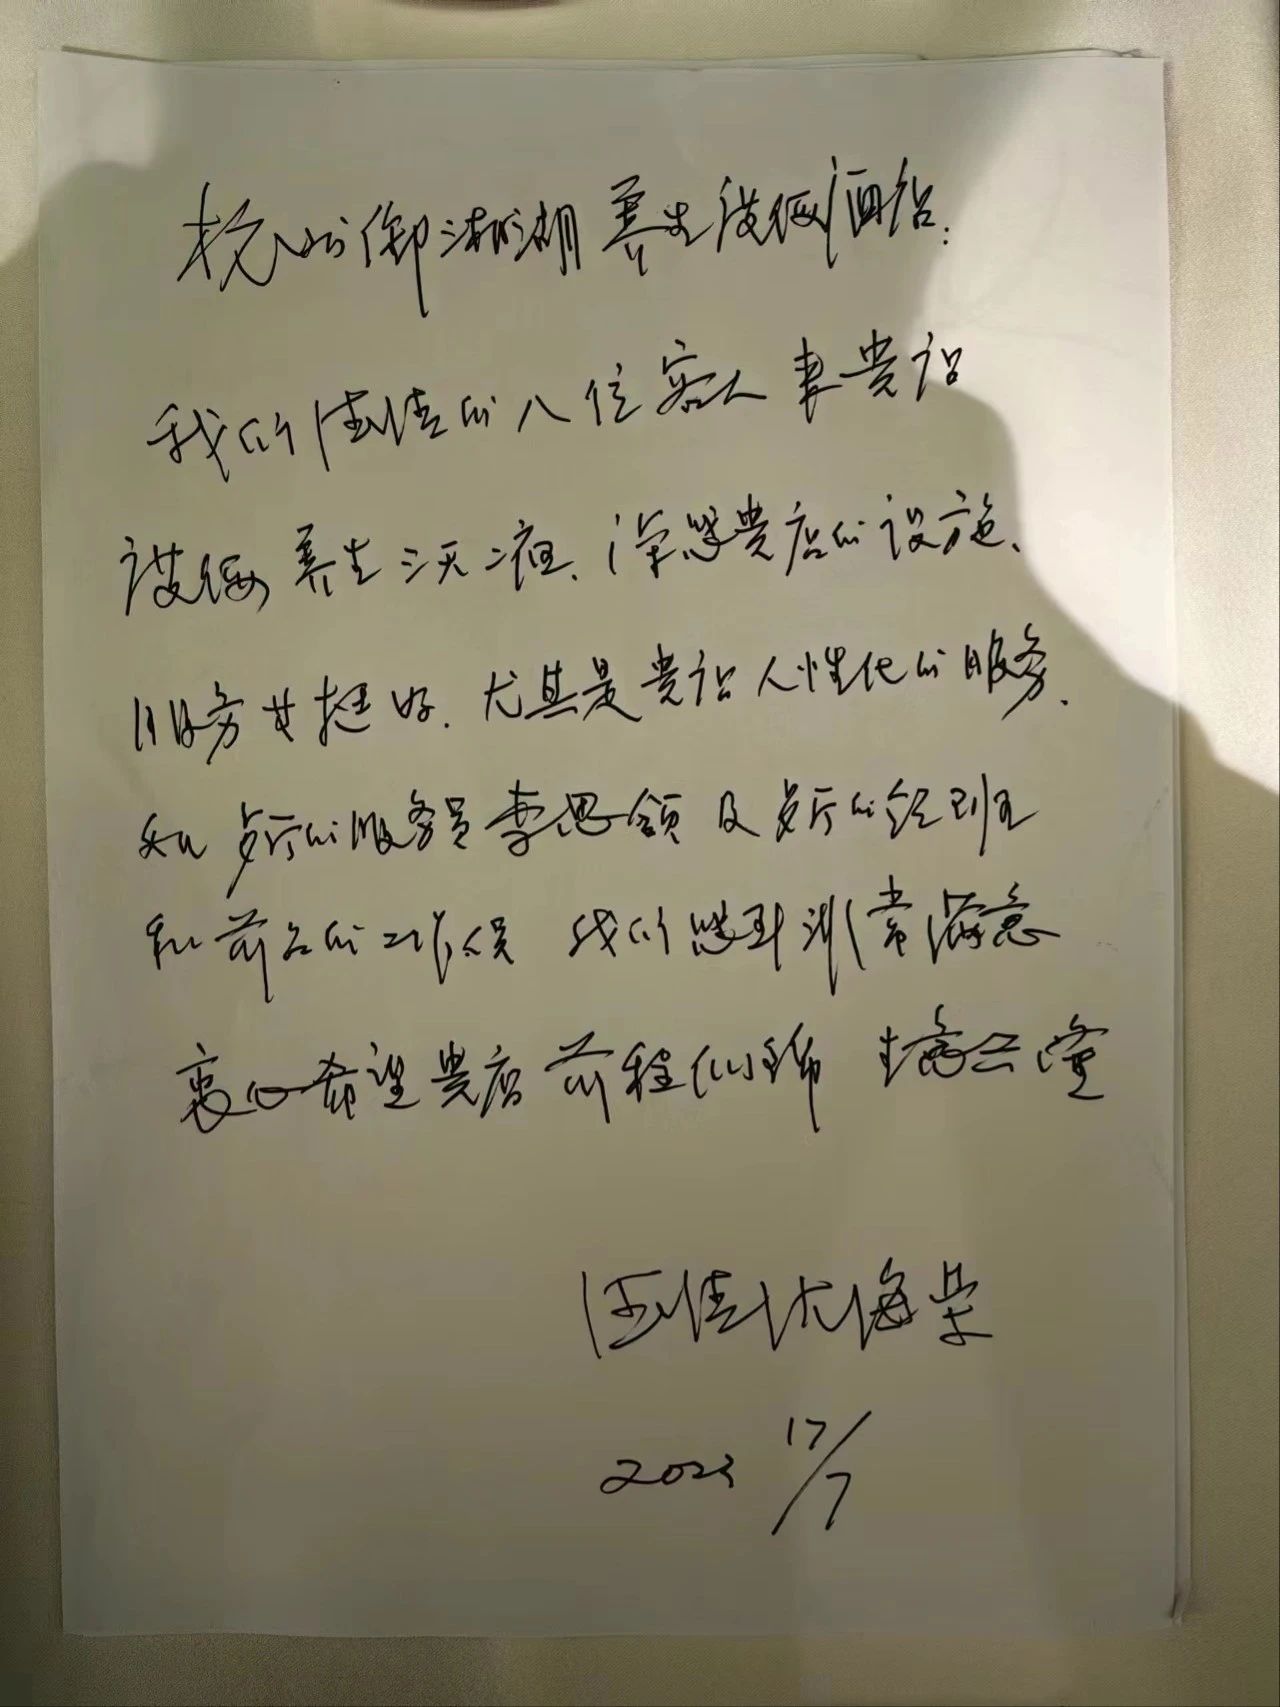 杭州御湘湖养生度假酒店:
我们 的八位客人来贵店
度假养生三天二夜、深感贵店的设施、
服务生挺好.尤其是贵店人性化的服务.
和 的服务员李思领及 的经理
和前台的工作人员 我们感到非常满意
衷心希望贵店前程似锦 生意兴隆
沈海荣
2023 17/7